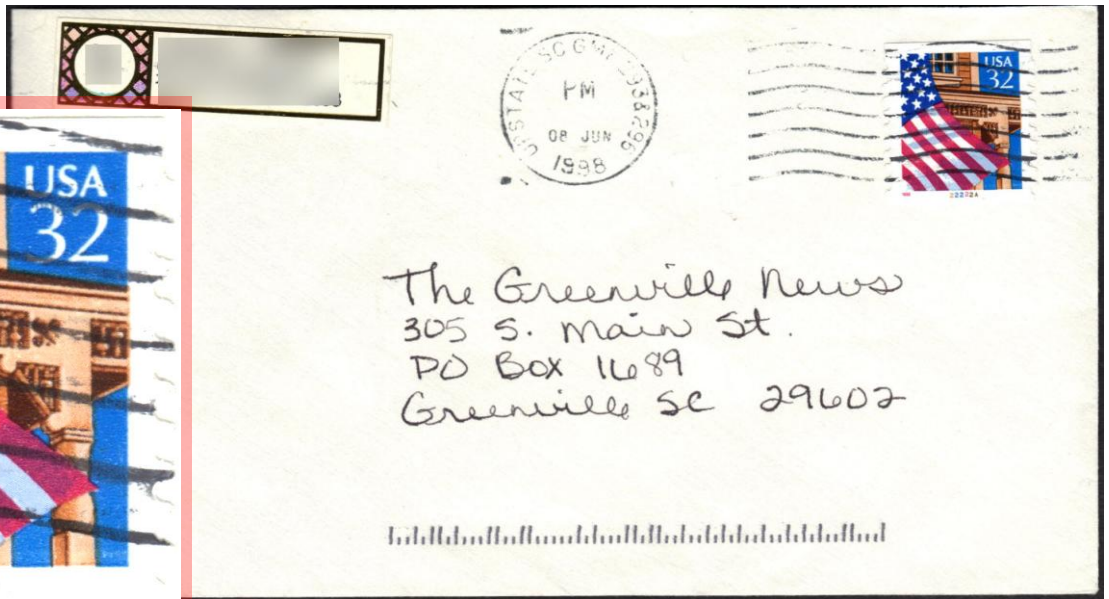 UPSTATE SC GMF 293&296
PM
08 JUN
1998
USA
32
22222A
The Greenville News
305 S. Main St.
PO Box 1689
Greenville SC 29602
USA
32